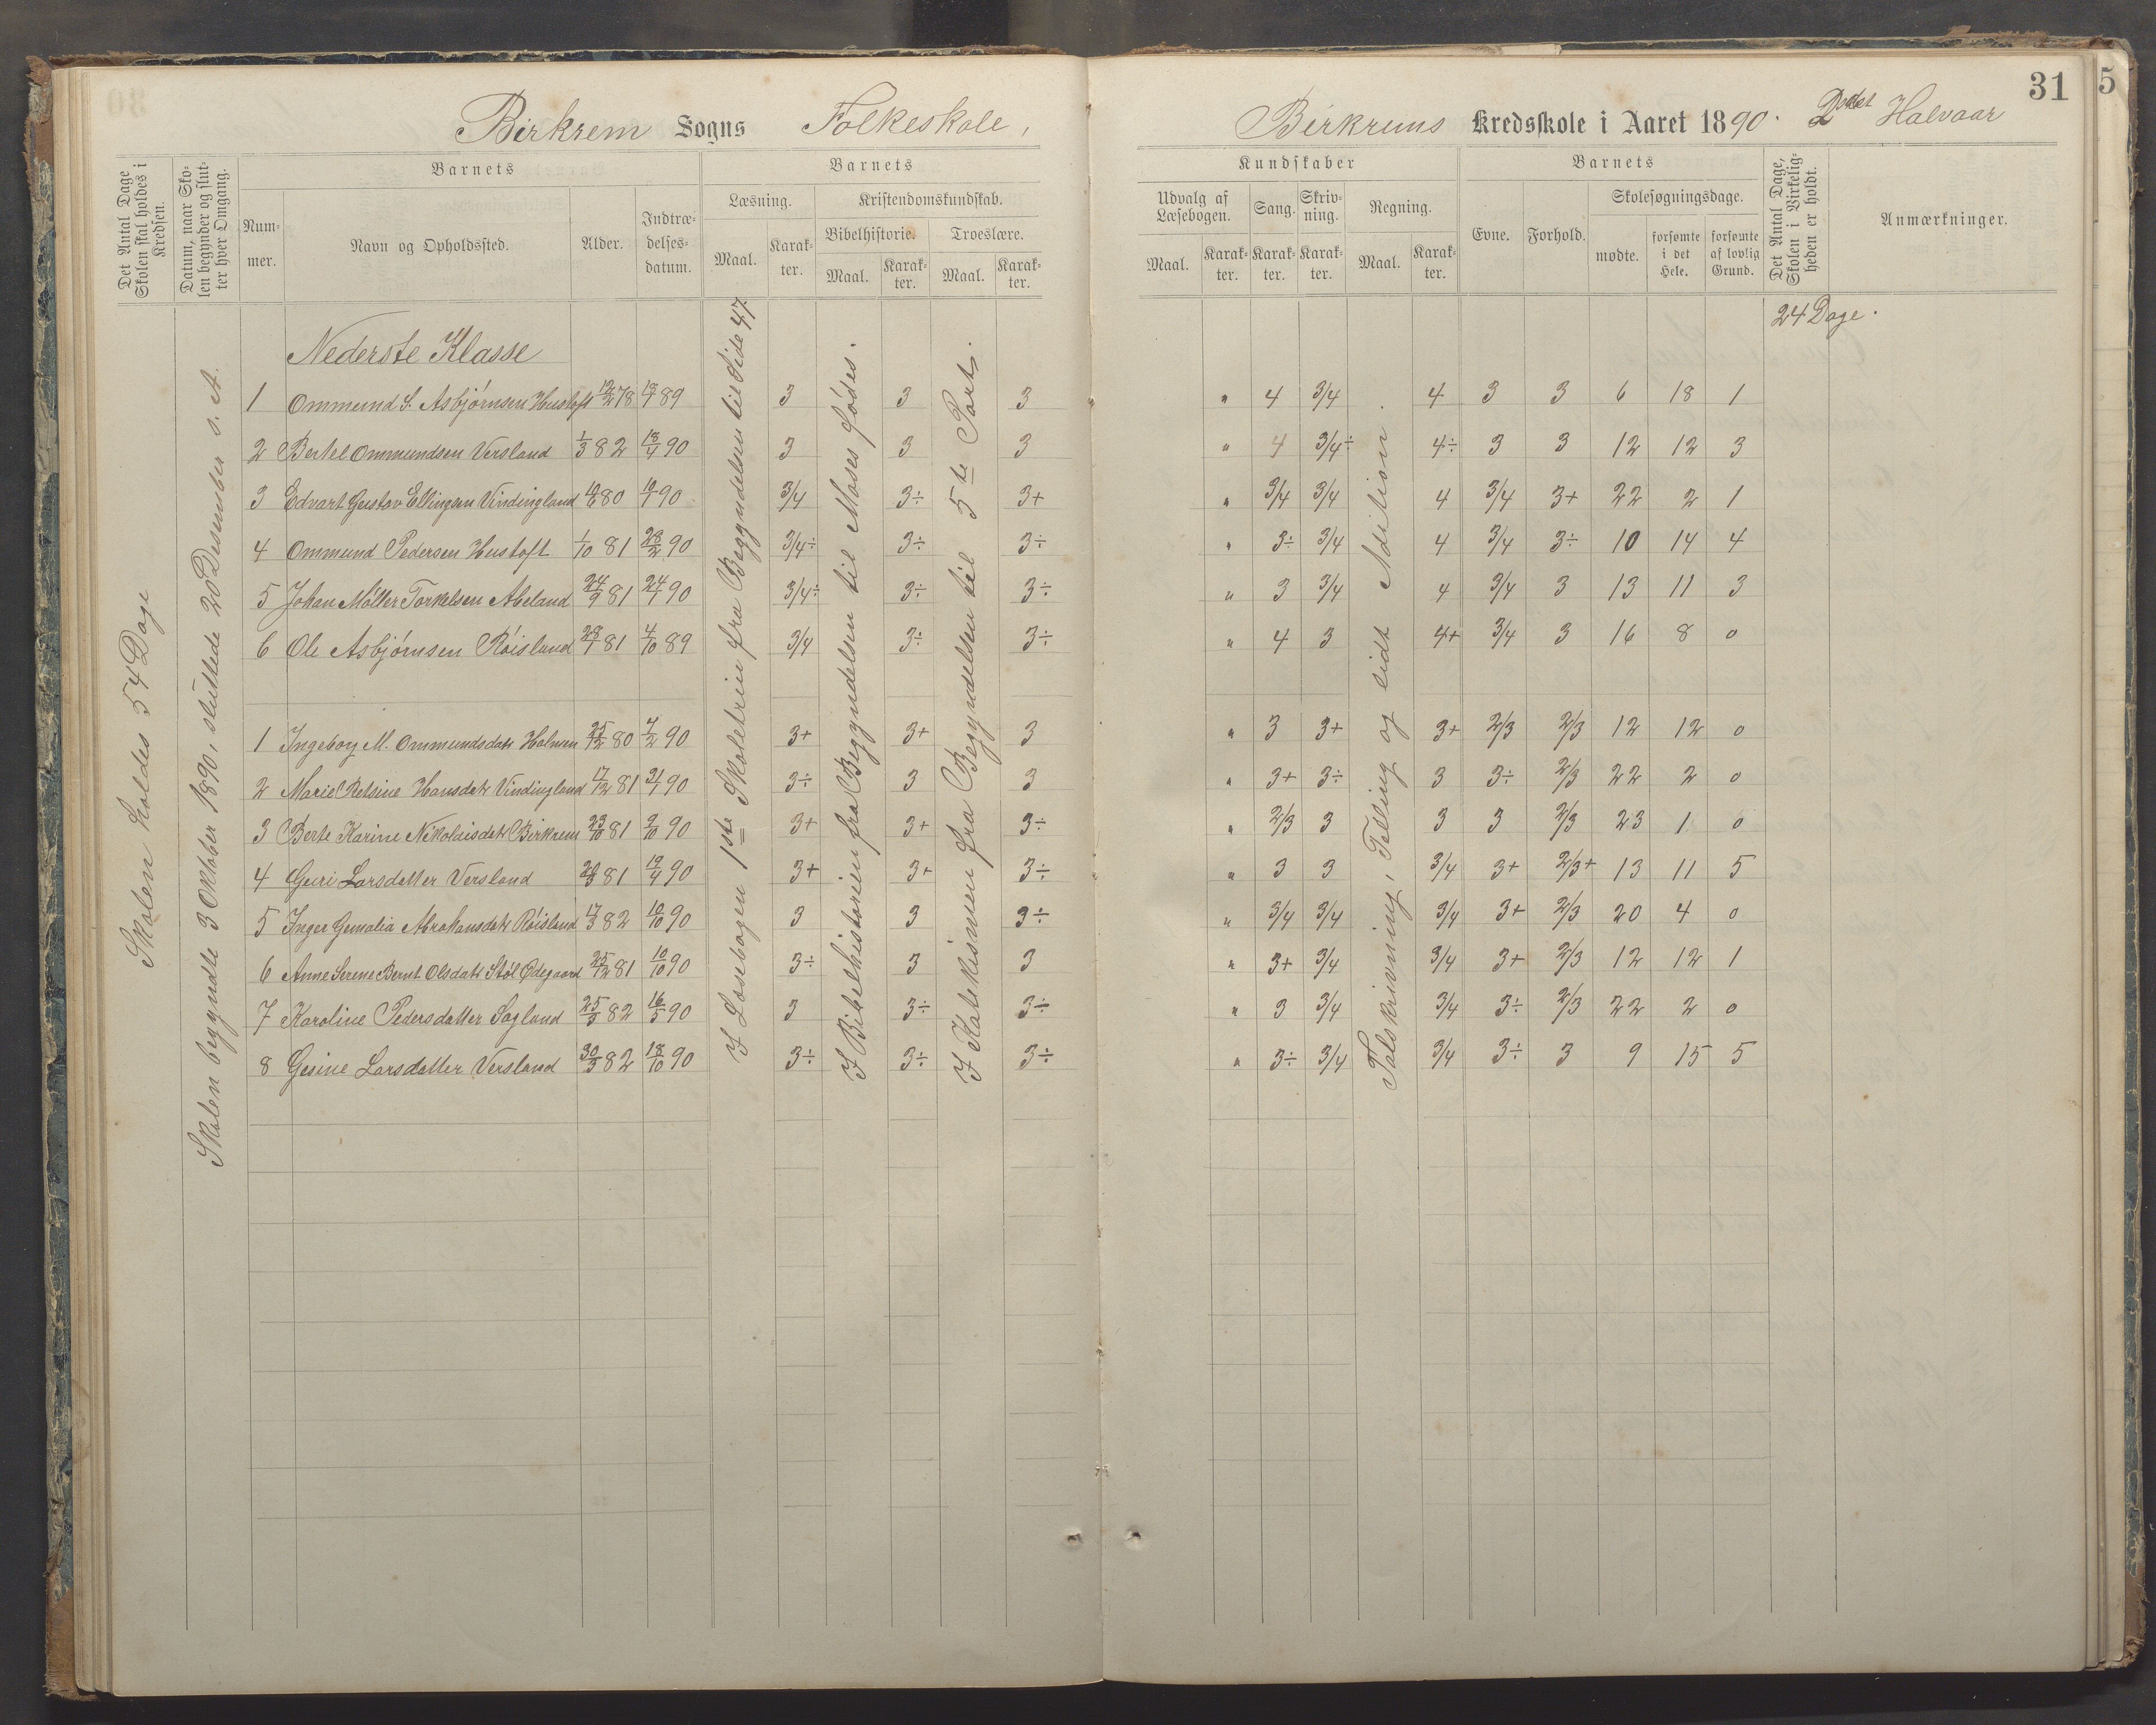 Birkrem Sogns Folkeskole,
Birkrems Kredsskole i Aaret 1890. 2det Halvaar
31
5
Det Antal Dage Skolen skal holdes i Kredsen.
Datum, naar Skolen begynder og slutter hver Omgang.
Barnets
Nummer.
Navn og Opholdssted.
Alder.
Indtrædelsesdatum.
Barnets
Læsning.
Maal.
Karakter.
Kristendomskundskab.
Bibelhistorie.
Maal.
Karakter.
Troeslære.
Maal.
Karakter.
Kundskaber
Udvalg af Læsebogen.
Maal.
Karakter.
Sang.
Karakter.
Skrivning.
Karakter.
Regning.
Maal.
Karakter.
Barnets
Evne.
Forhold.
Skolesøgningsdage.
mødte.
forsømte i det Hele.
forsømte af lovlig Grund.
Det Antal Dage, Skolen i Virkeligheden er holdt.
Anmærkninger.
Skolen holdes 54 Dage
Skolen begyndte 3 Oktober 1890, sluttede 20 Desember s. A.
I Læsebogen 1ste Skoletrin fra Begyndelsen til Side 47
I Bibelhistorien fra Begyndelsen til Moses Fødes.
I Katekismen fra Begyndelsen til 5te Part.
Talskrivning, Telling og lidt Adition.
24 Dage.
Nederste Klasse
1 Ommund S. Asbjørnsen Hustoft 12/2 78 18/7 89 3 3 3 " 4 3/4 4 3 3 6 18 1
2 Bertel Ommundsen Versland 1/3 82 18/4 90 3 3 3 " 4 3/4÷ 4÷ 3 3 12 12 3
3 Edvart Gustav Ellingsen Vindingland 80 90 3/4 3÷ 3+ " 3/4 3/4 4 3/4 3+ 22 2 1
4 Ommund Pedersen Hustoft 1/10 81 28/2 90 3/4÷ 3÷ 3÷ " 3÷ 3/4 4 3/4 3÷ 10 14 4
5 Johan Møller Torkelsen Abeland 24/9 81 24/7 90 3/4÷ 3÷ 3÷ " 3 3/4 4 3/4 3 13 11 3
6 Ole Asbjørnsen Röisland 28/7 81 4/10 89 3/4 3÷ 3÷ " 4 3 4+ 3/4 3 16 8 0
1 Ingeborg M. Ommundsdatr Holmen 25/12 80 7/2 90 3+ 3+ 3 " 3 3+ 3+ 2/3 2/3 12 12 0
2 Marie Retsine Hansdatr Vindingland 17/2 81 90 3÷ 3 3 " 3+ 3÷ 3 3÷ 2/3 22 2 0
3 Berte Karine Nikolaisdatr Birkrem 23/10 81 2/10 90 3+ 3+ 3÷ " 2/3 3 3 3 2/3 23 1 0
4 Guri Larsdatter Versland 81 90 3+ 3+ 3÷ " 3 3 3/4 3+ 2/3+ 13 11 5
5 Inger Gemalia Abrahamsdatr Röisland 17/3 82 10/10 90 3 3 3÷ " 3/4 3/4 3/4 3+ 2/3 20 4 0
6 Anne Serene Bernt Olsdatr Støl Ødegaard 25/12 81 10/10 90 3÷ 3 3 " 3+ 3/4 3/4 3+ 2/3 12 12 1
7 Karoline Pedersdatter Sagland 25/3 82 16/5 90 3 3÷ 3÷ " 3 3/4 3/4 3÷ 2/3 22 2 0
8 Gesine Larsdatter Versland 30/3 82 18/10 90 3÷ 3÷ 3÷ " 3÷ 3/4 3/4 3÷ 3 9 15 5